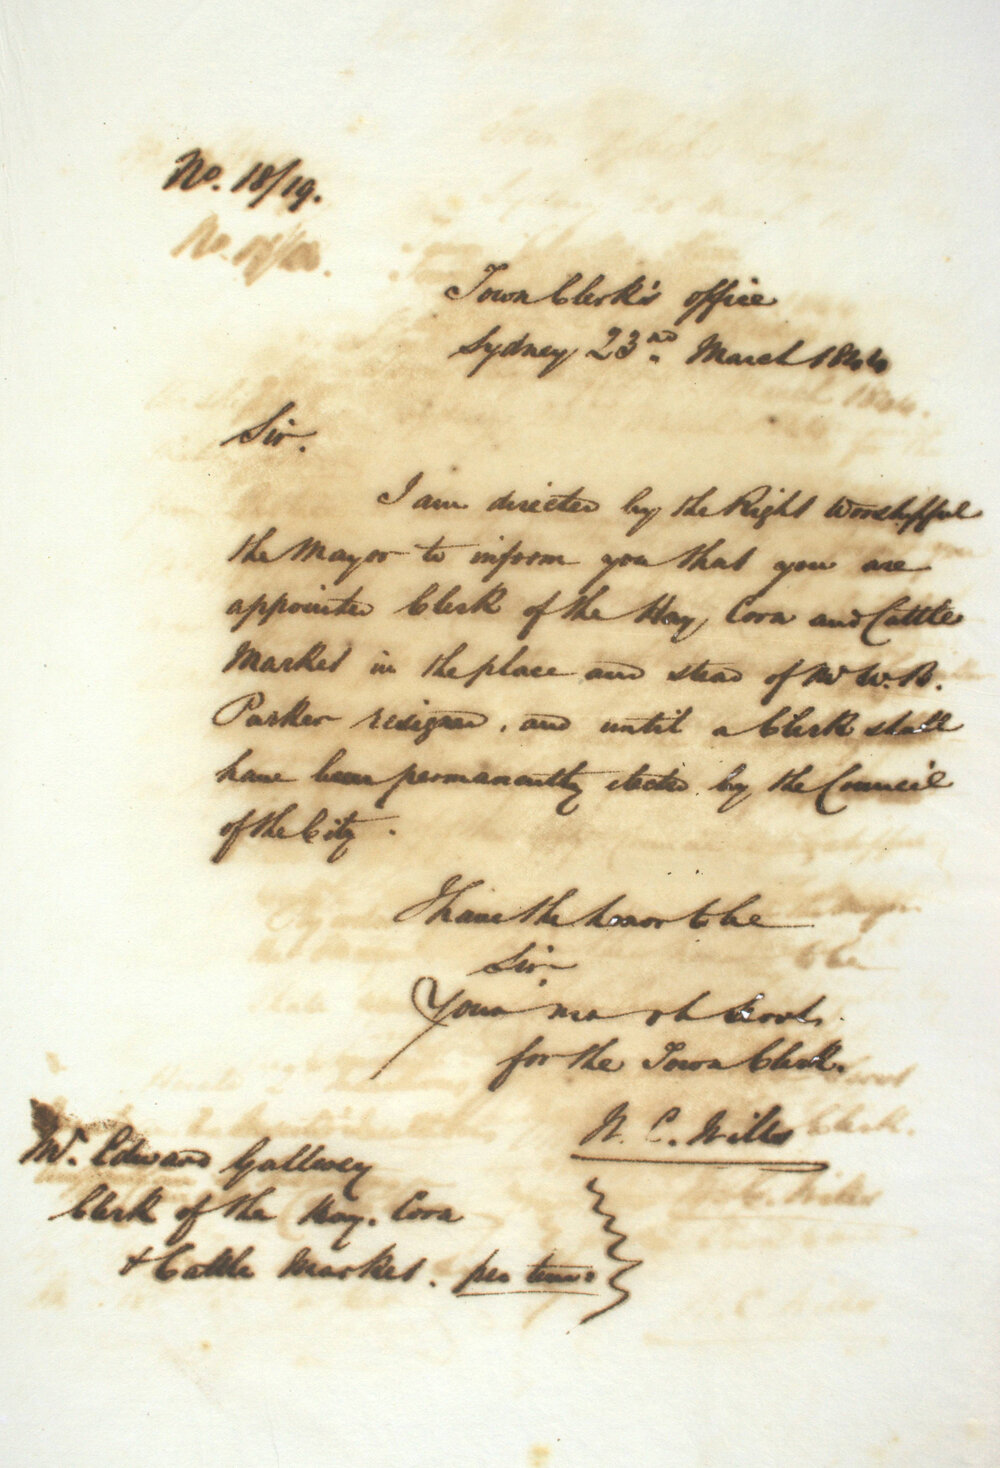 No. 18/19.
Town Clerk's office
Sydney 23rd. March 1844
Sir.
I am directed by the Right Worshipful
the Mayor to inform you that you are
appointed Clerk of the Hay, Corn and Cattle
Market in the place and stead of Mr W. B.
Parker resigned, and until a Clerk shall
have been permanently elected by the Council
of the City.
I have the honor to be
Sir
Your mo ob Servt.
for the Town Clerk.
Mr. Edward Gallewey
W. C. Wills
Clerk of the Hay. Corn
& Cattle Market. pro tem: